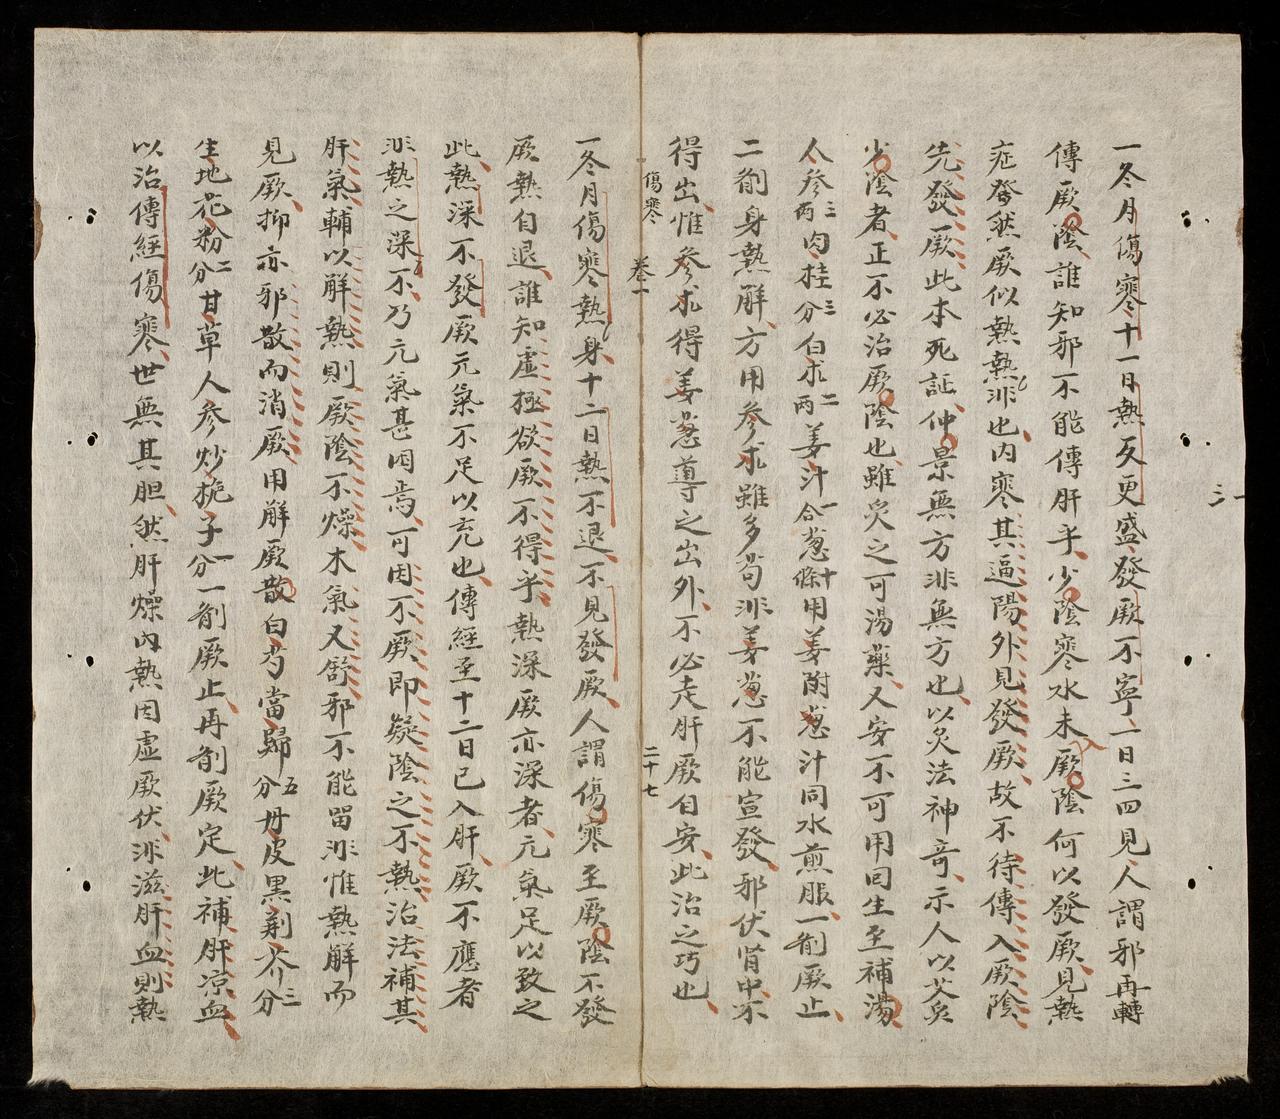 一冬月傷寒十一日熱反更盛發厥不寧一日三四見人謂邪再轉
傳厥陰誰知邪不能傳肝乎少陰寒水未厥陰何以發厥見熱
症發然厥似熱熱非也內寒其逼陽外見發厥故不待傳入厥陰
先發厥此本死証仲景無方非無方也以灸法神竒示人以艾灸
少陰者正不必治厥陰也雖灸之可湯藥又安不可用回生至補湯
人參三兩肉桂三分白朮二兩姜汁一合葱十條用姜附葱汁同水煎服一剤厥止
二剤身熱解方用參朮雖多茍非姜葱不能宣發邪伏腎中不
得出惟參朮得姜葱導之出外不必走肝厥自安此治之巧也
傷寒
卷一
二十七
一冬月傷寒熱身十二日熱不退不見發厥人謂傷寒至厥陰不發
厥熱自退誰知虛極欲厥不得乎熱深厥亦深者元氣足以致之
此熱深不發厥元氣不足以充也傳經至十二日已入肝厥不應者
非熱之深不乃元氣甚困焉可因不厥即疑陰之不熱治法補其
肝氣輔以解熱則厥陰不燥木氣又舒邪不能留非惟熱解而
見厥抑亦邪散而消厥用解厥散白芍當歸五分丹皮黑荆芥三分
生地花粉二分甘草人參炒梔子一分一剤厥止再剤厥定此補肝凉血
以治傳經傷寒世無其胆然肝燥內熱因虛厥伏非滋肝血則熱